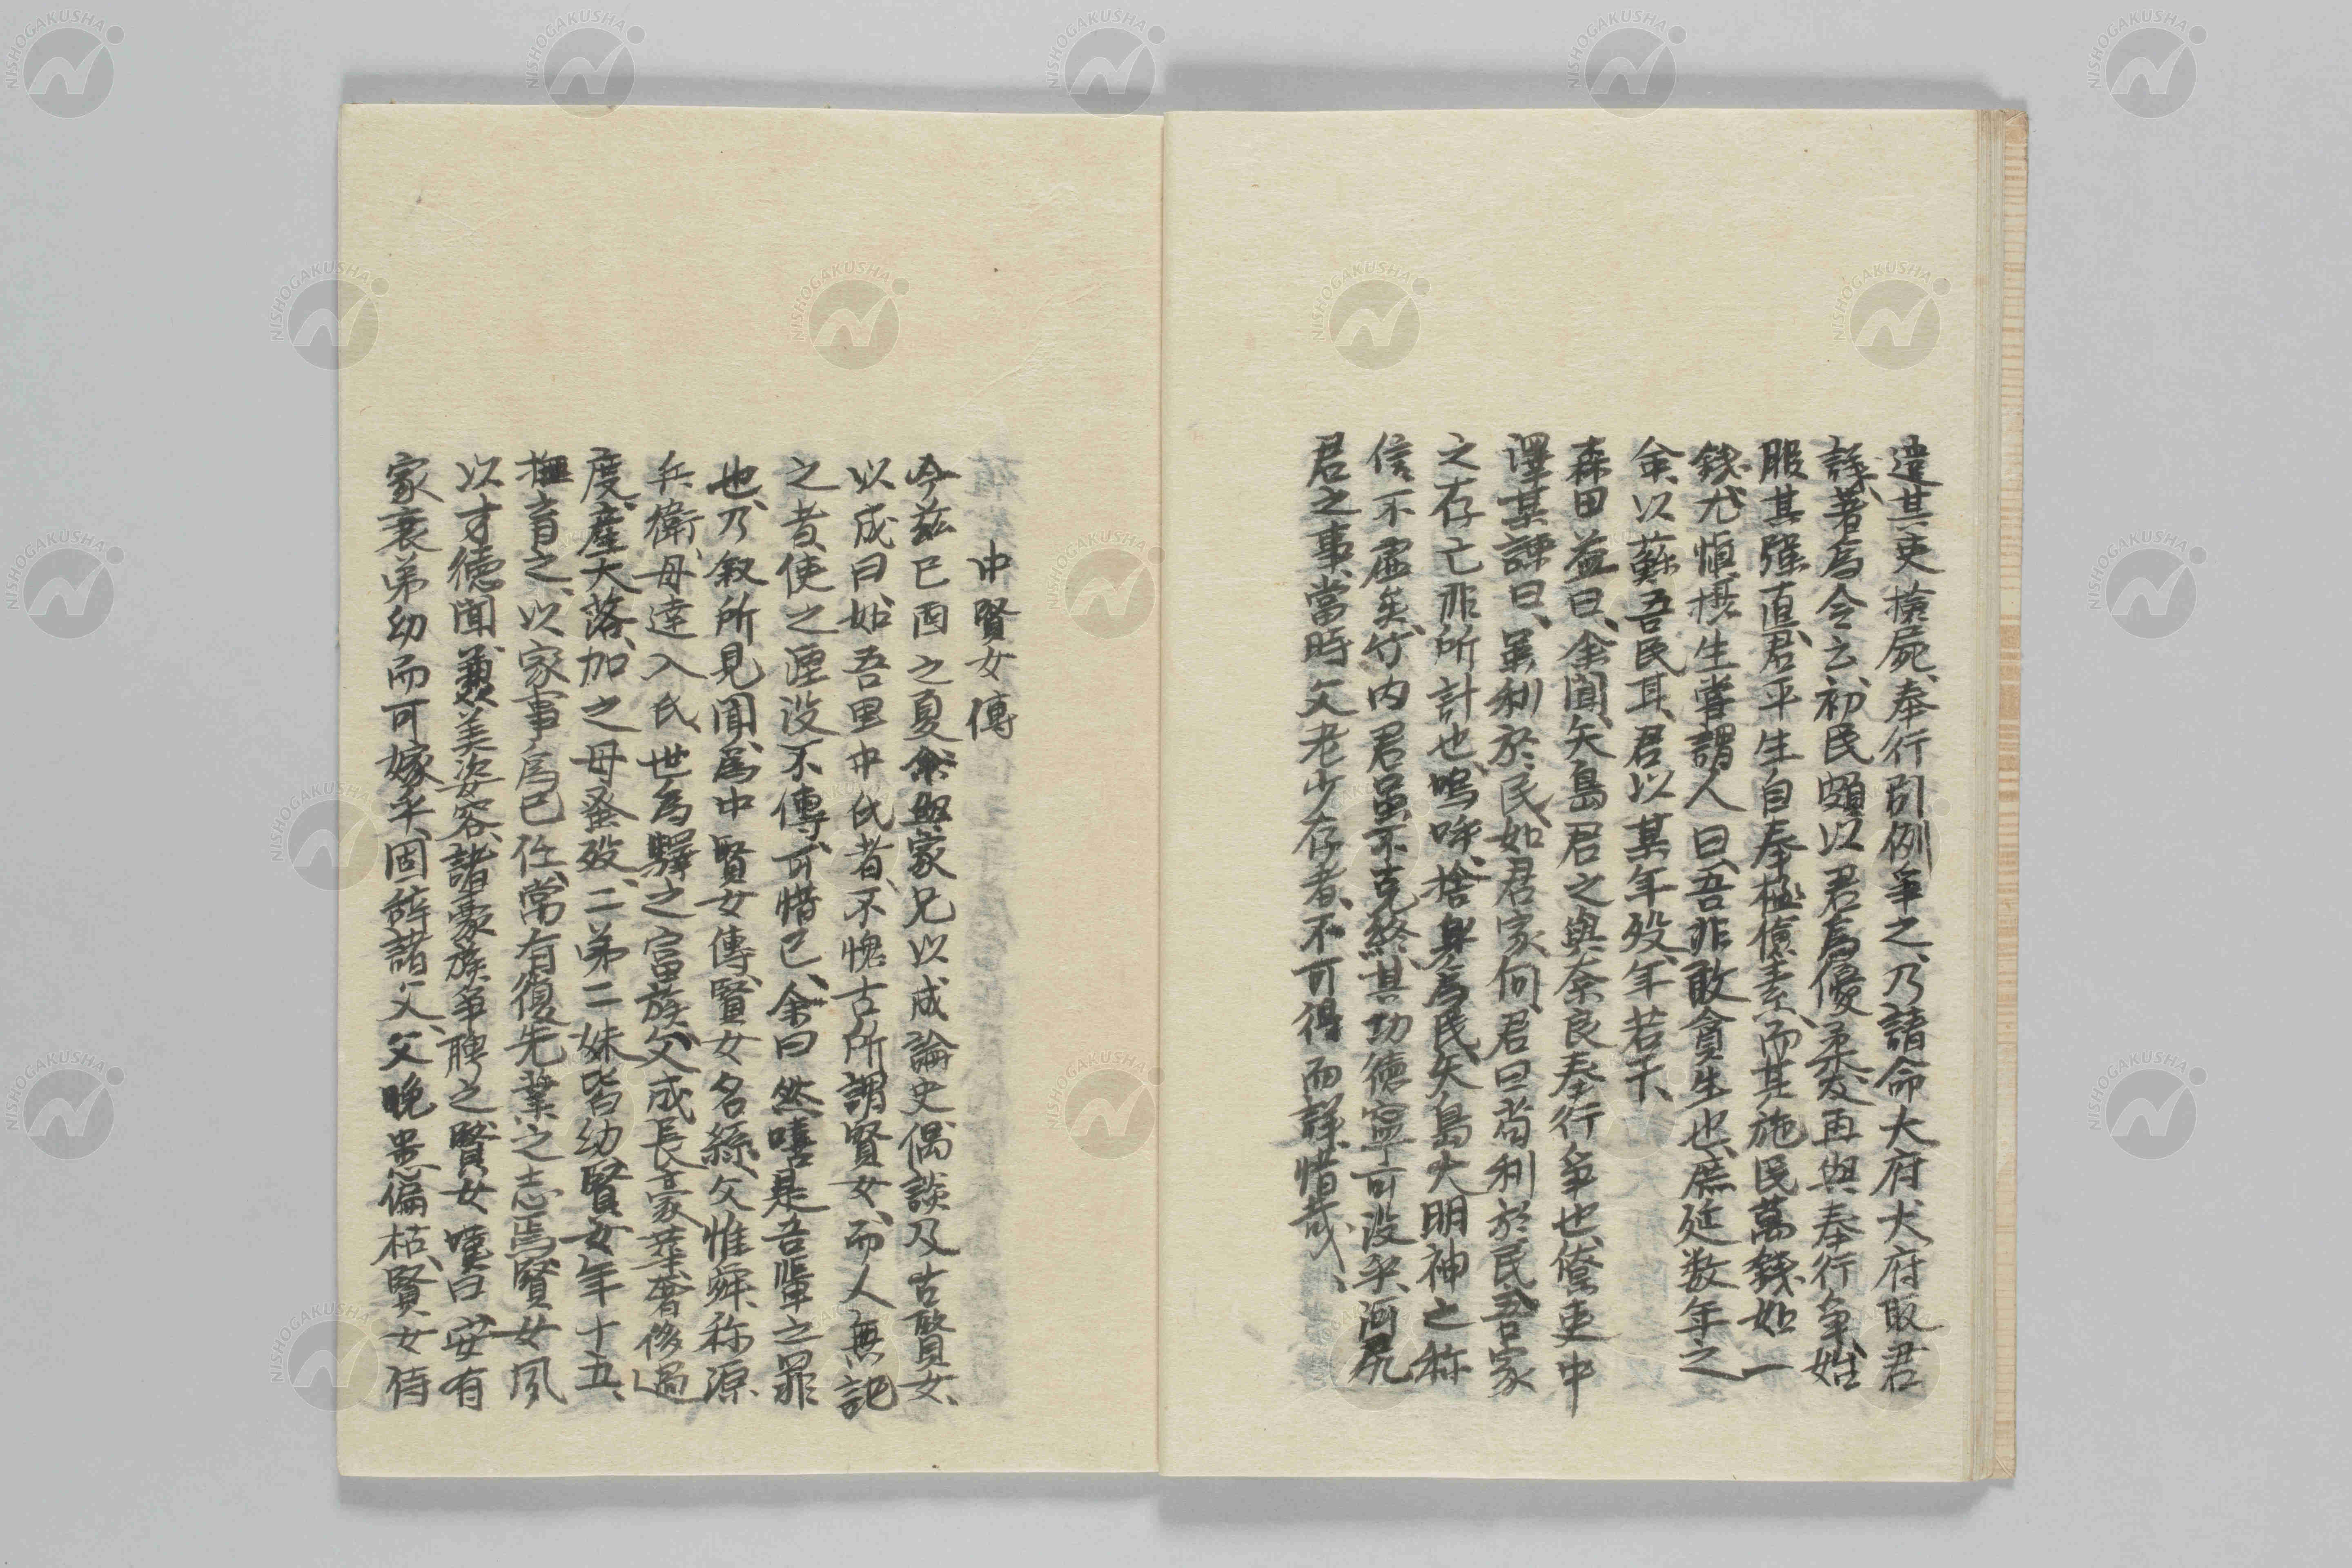 違其吏擯屍、奉行引例争之、乃請命大府、大府取君
議、著爲令云、初民頗以君爲優柔、及再與奉行争、始
服其强直、君平生自奉極儉素、而其施民萬錢如一
錢、尤慎摂生、嘗謂人曰、吾非敢貪生也、庶延数年之
余、以蘇吾民耳、君以某年歿、年若干、
森田益曰、余聞、矢島君之與奈良奉行争也、僚吏中
澤某諌曰、虽利於民、如君家何、君曰、苟利於民、吾家
之存亡、非所計也、嗚呼、捨身爲民、矢島大明神之称
信不虚矣、竹内君虽不克終其功、徳寧可没乎、河尻
君之事、當時父老少存者、不可得而詳、惜哉、
中賢女傳
今茲己酉之夏、余與家兄以成論史、偶談及古賢女、
以成曰、如吾里中氏者、不愧古所謂賢女、而人無記
之者、使之湮没不傳、可惜已、余曰、然、嘻是吾輩之罪
也、乃叙所見聞、爲中賢女傳、賢女名絲、父惟舜、称源
兵衛、母達入氏、世爲驛之富族、父成長豪華奢侈過
度、産大落、加之母蚤歿、二弟二妹皆幼、賢女年十五、
撫育之、以家事爲己任、常有復先業之志焉、賢女夙
以才徳聞、兼美姿容、諸豪族争聘之、賢女嘆曰、安有
家衰弟幼而可嫁乎、固辞諸父、父晩患偏枯、賢女侍